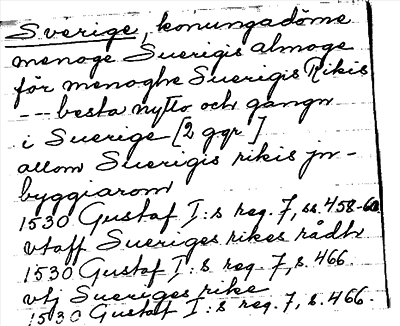 Sverige, konungadöme
menoge Suerigis almoge
för menoghe Suerigis Rikis
-- besta nytto och gangn
i Suerige [2 ggr]
allom Suerigis rikis jn-
byggiarom
1530 Gustaf I:s reg. 7, ss. 458-60
vtaff Sueriges rikes rådh
1530 Gustaf I:s reg. 7, s. 466.
vtj Sueriges rike
1530 Gustaf I:s reg. 7, s. 466.